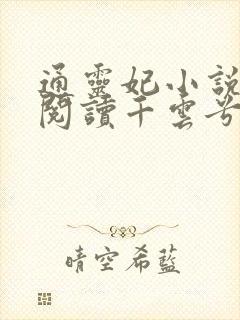 通靈妃小說
閱讀千雲兮
晴空希藍